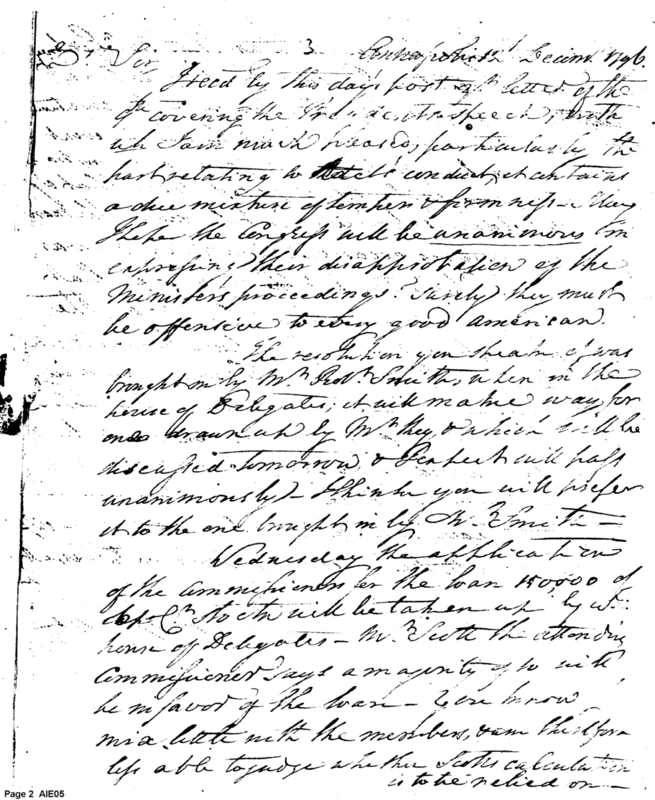 Sir, 3 Annapolis 12th Decemr. 1796.
I recd. by this day's post yr. letter of the
covering the President's speech, with
wh I am much pleased, particularly the
part relating to conduct, it contains
a due mixture of temper & firmness —
I hope the Congress will be unanimous in
expressing their disapprobation of the
Ministers proceedings. Surely they must
be offensive to every good American.
The resolution you speak of was
brought in by Mr. Robt. Smith, when in the
house of Delegates; it will make way for
one drawn up by Mr. Key & which will be
discussed tomorrow & I expect will pass
unanimously — I think you will prefer
it to the one brought in by Mr. Smith —
Wednesday the application
of the Commissioners for the loan 150000 of
Stock will be taken up by
house of Delegates — Mr. Scott the attending
Commissioner says a majority of 10 will
be in favor of the loan — You know I
mix little with the members, & am therefore
less able to judge whether Scotts calculation
is to be relied on —
Page 2 AIE05